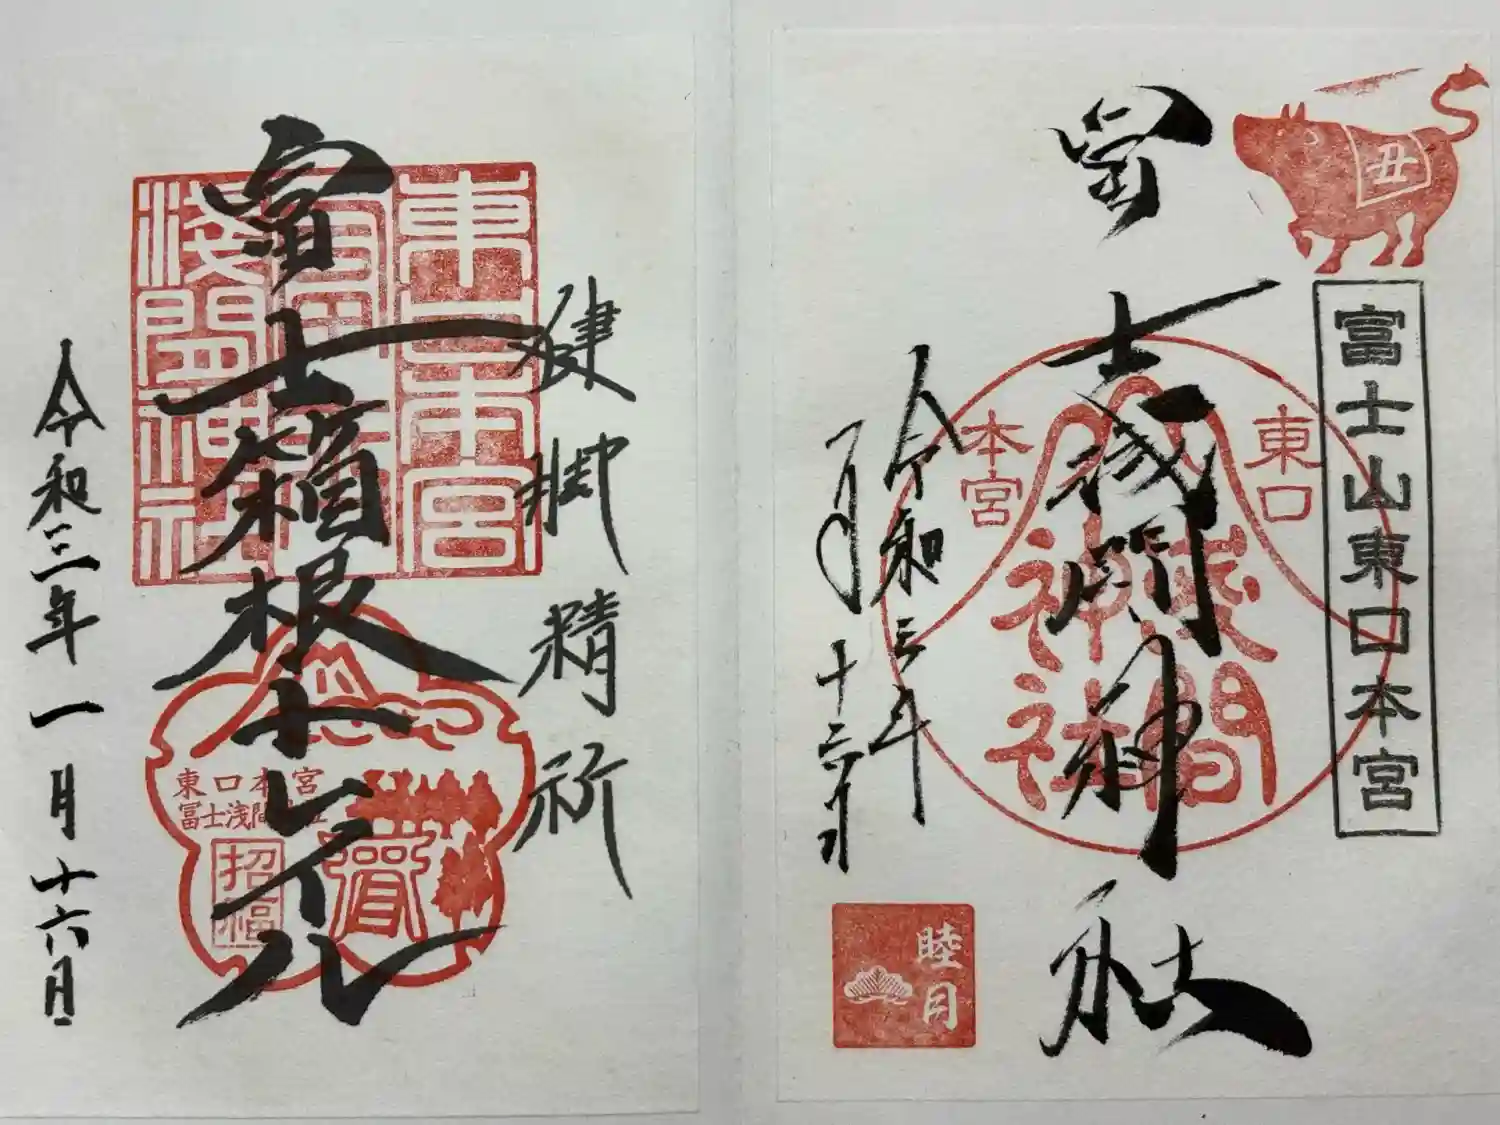 丑
富士山東口本宮
冨士浅間神社
東口
本宮
浅間
神社
令和三年
睦月
健脚精祈
東口本宮
浅間神社
富士箱根トレイル
東口本宮
冨士浅間神社
招福
令和三年一月十六日